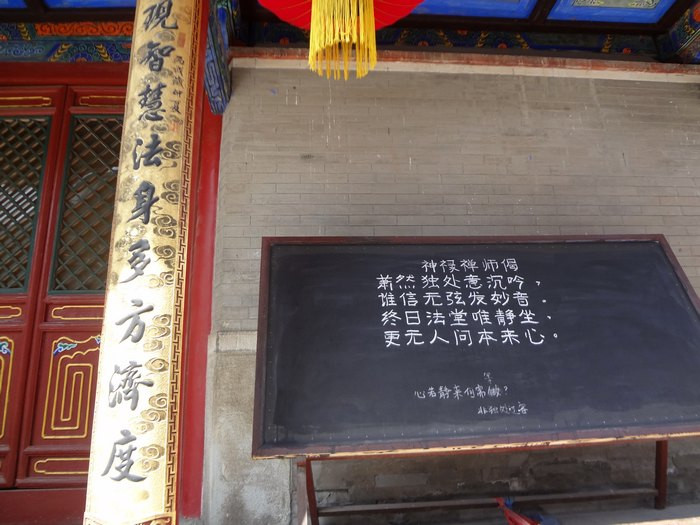 现智慧法身多方濟度
神役禅师偈
萧然独处意沉吟，
谁信无弦发妙音。
终日法堂唯静坐，
更无人问本来心。
心若静来何需做？